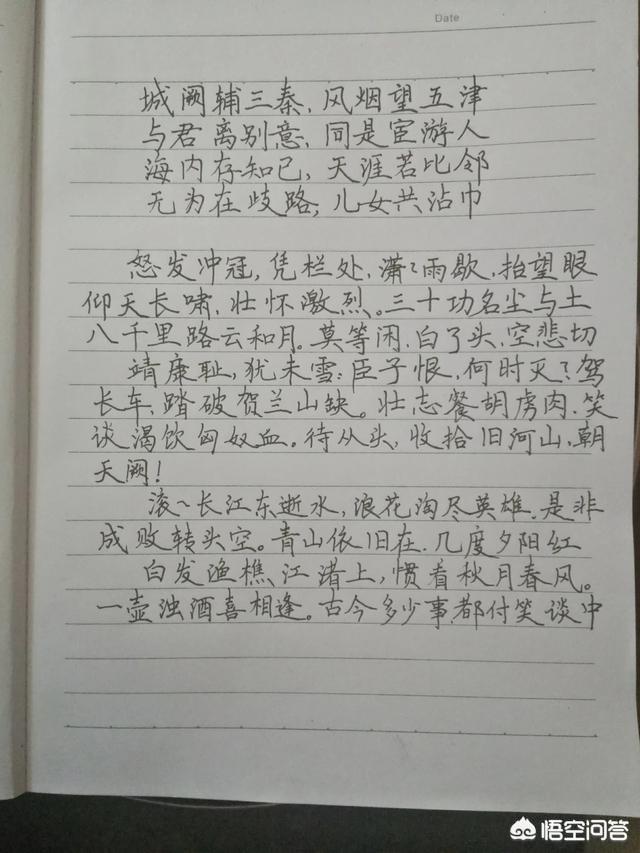 Date
城阙辅三秦,风烟望五津
与君离别意,同是宦游人
海内存知己,天涯若比邻
无为在歧路,儿女共沾巾
怒发冲冠,凭栏处,潇〻雨歇,抬望眼
仰天长啸,壮怀激烈。三十功名尘与土
八千里路云和月。莫等闲,白了头,空悲切
靖康耻,犹未雪;臣子恨,何时灭?驾
长车,踏破贺兰山缺。壮志餐胡虏肉,笑
谈渴饮匈奴血。待从头,收拾旧河山,朝
天阙!
滚〜长江东逝水,浪花淘尽英雄,是非
成败转头空。青山依旧在,几度夕阳红
白发渔樵江渚上,惯看秋月春风。
一壶浊酒喜相逢。古今多少事,都付笑谈中
悟空问答